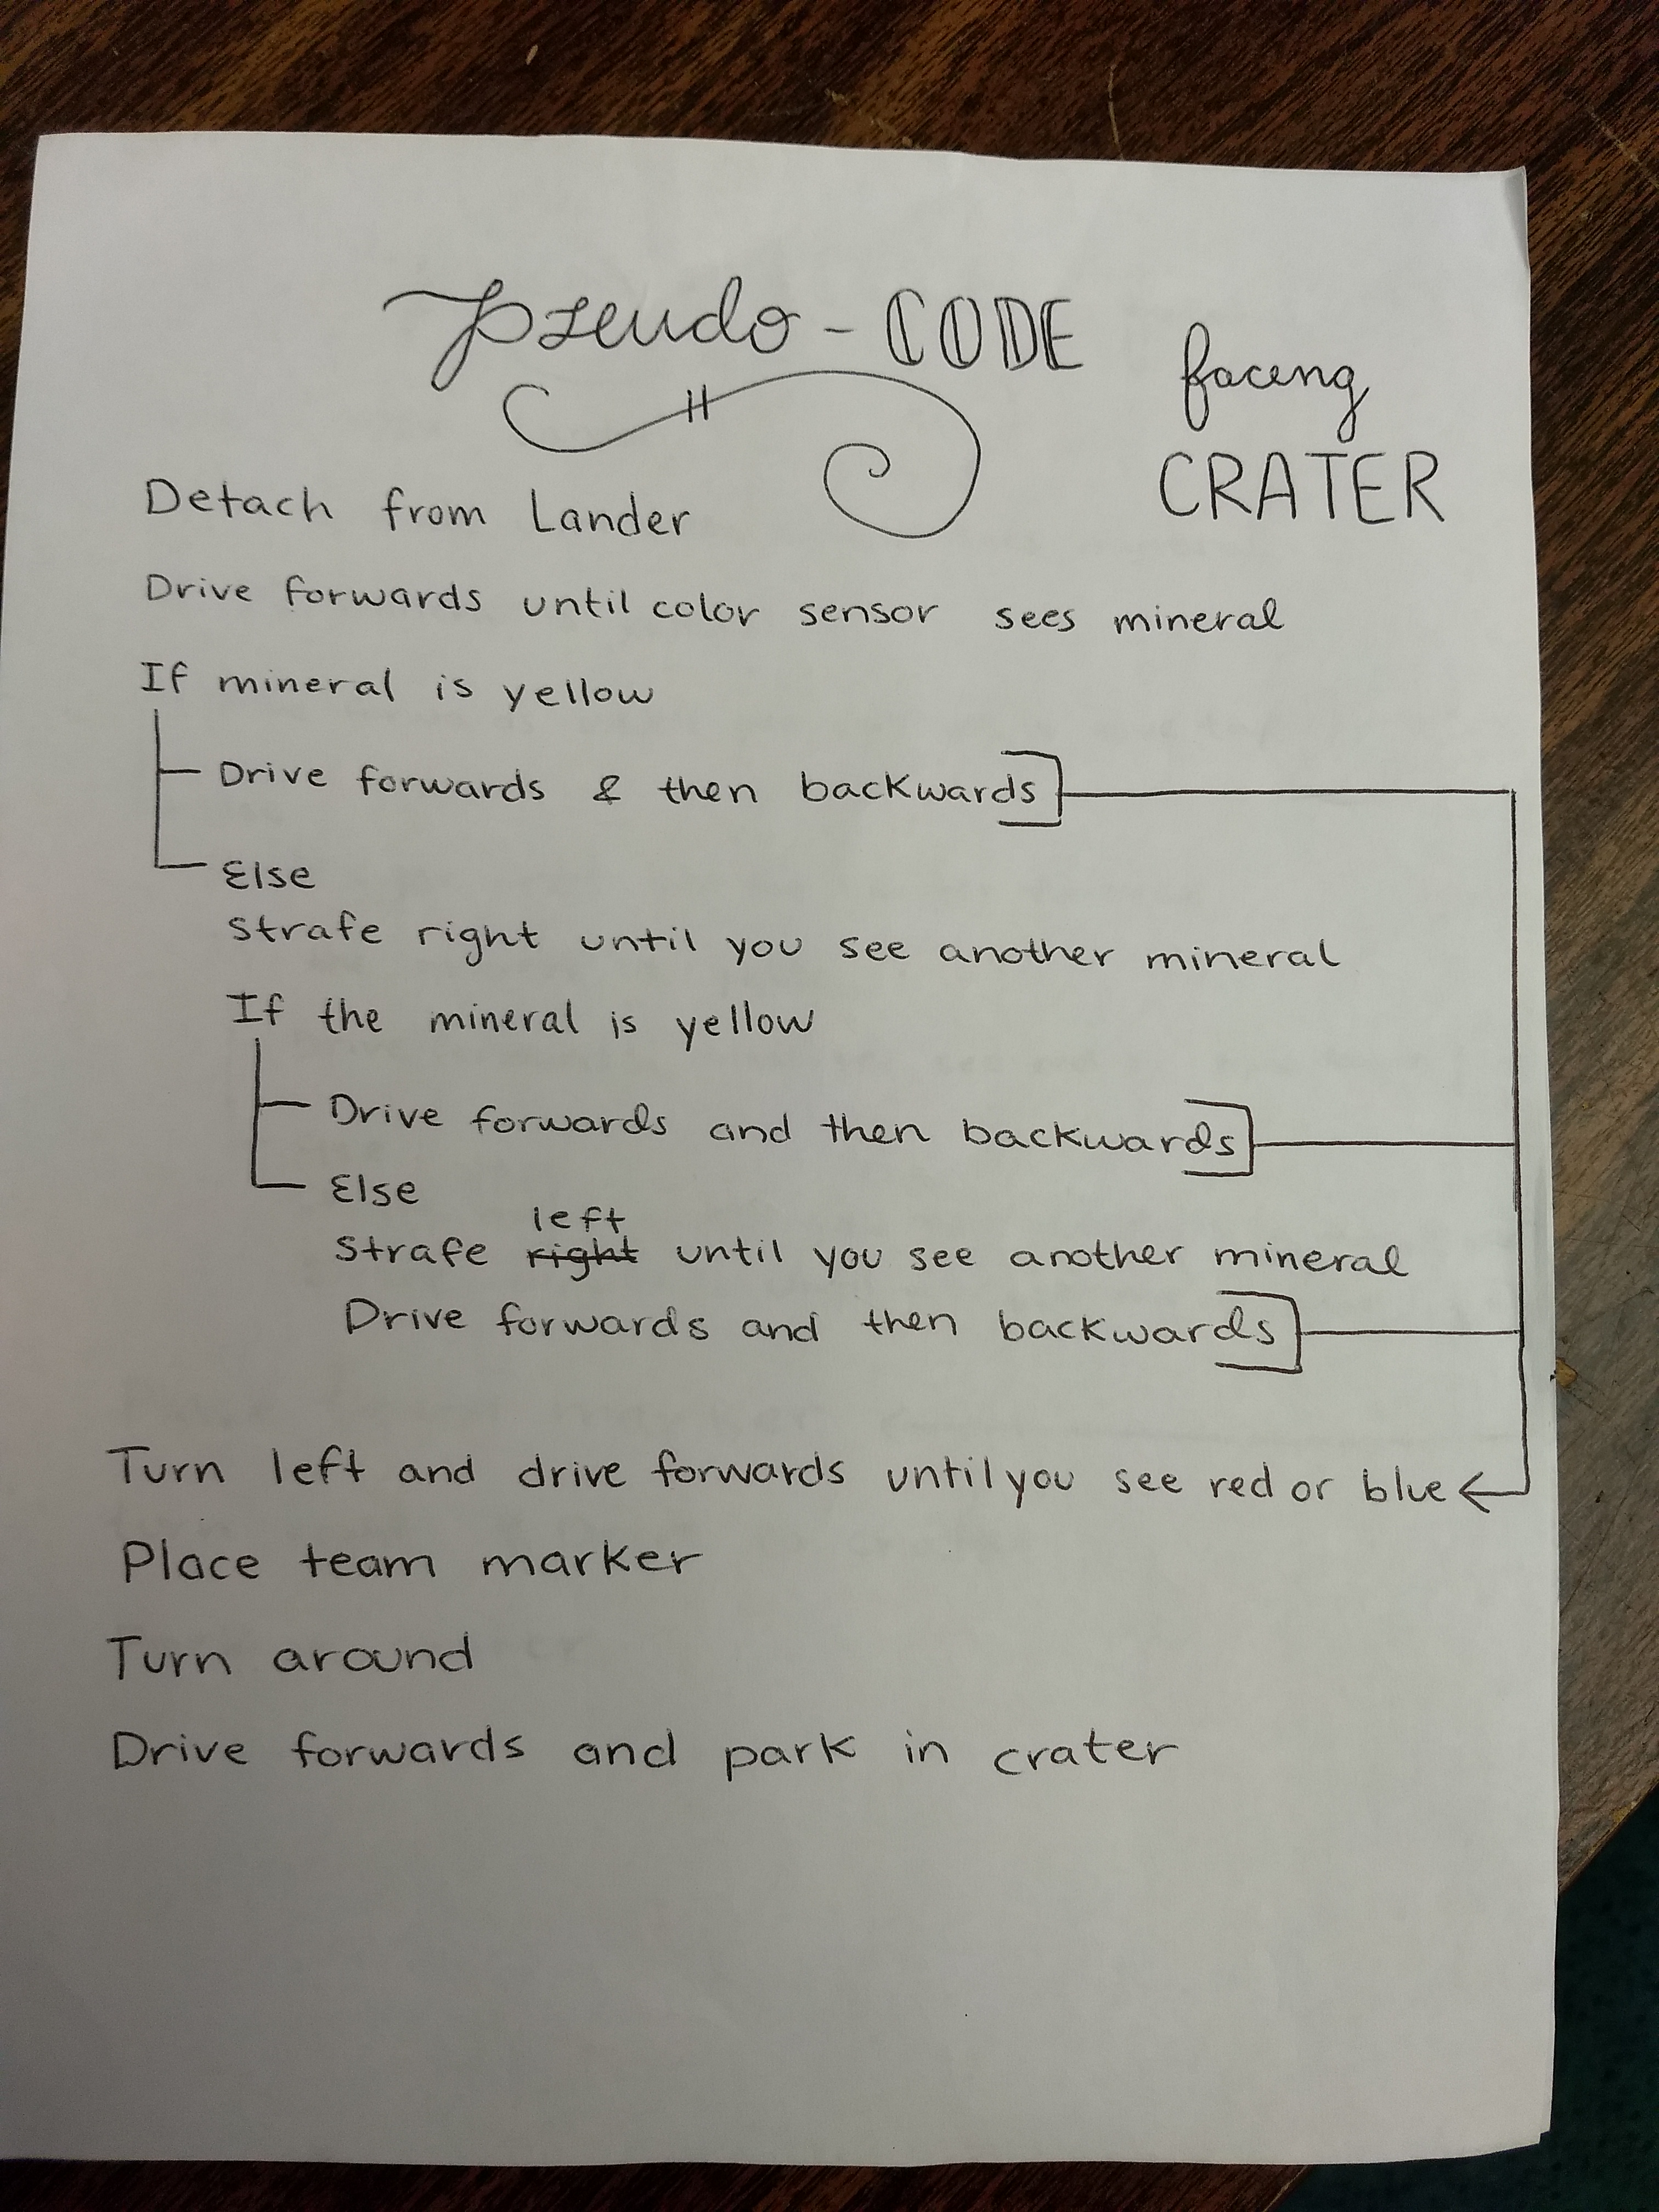 pseudo - CODE
facing
CRATER
Detach from Lander
Drive forwards until color sensor sees mineral
If mineral is yellow
Drive forwards & then backwards
Else
Strafe right until you see another mineral
If the mineral is yellow
Drive forwards and then backwards
Else
left
Strafe right until you see another mineral
Drive forwards and then backwards
Turn left and drive forwards until you see red or blue
Place team marker
Turn around
Drive forwards and park in crater